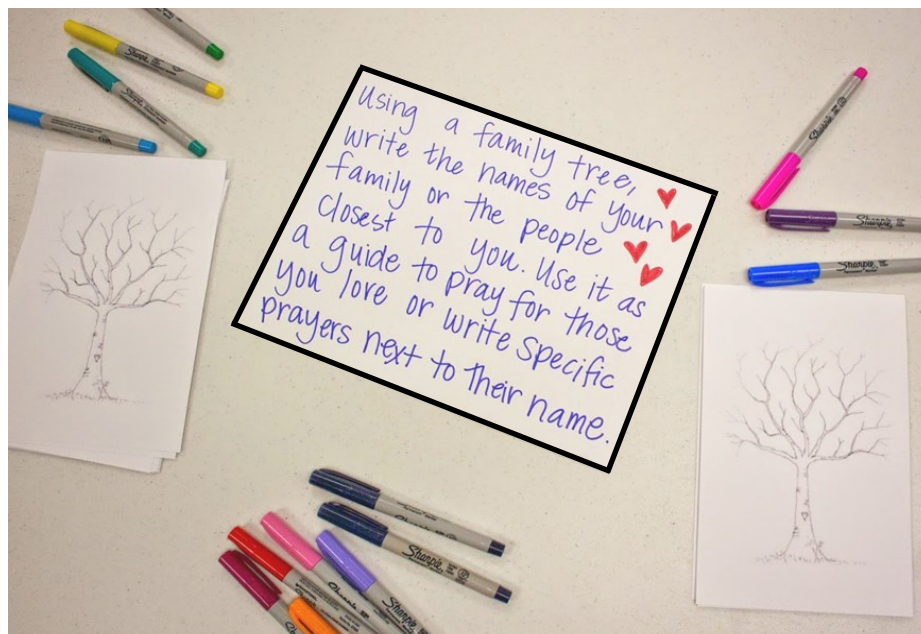 Using a family tree,
write the names of your
family or the people
closest to you. Use it as
a guide to pray for those
you love or write specific
prayers next to their name.
Sharpie
Sharpie
Sharpie
Sharpie
Sharpie
Sharpie
Sharpie
Sharpie